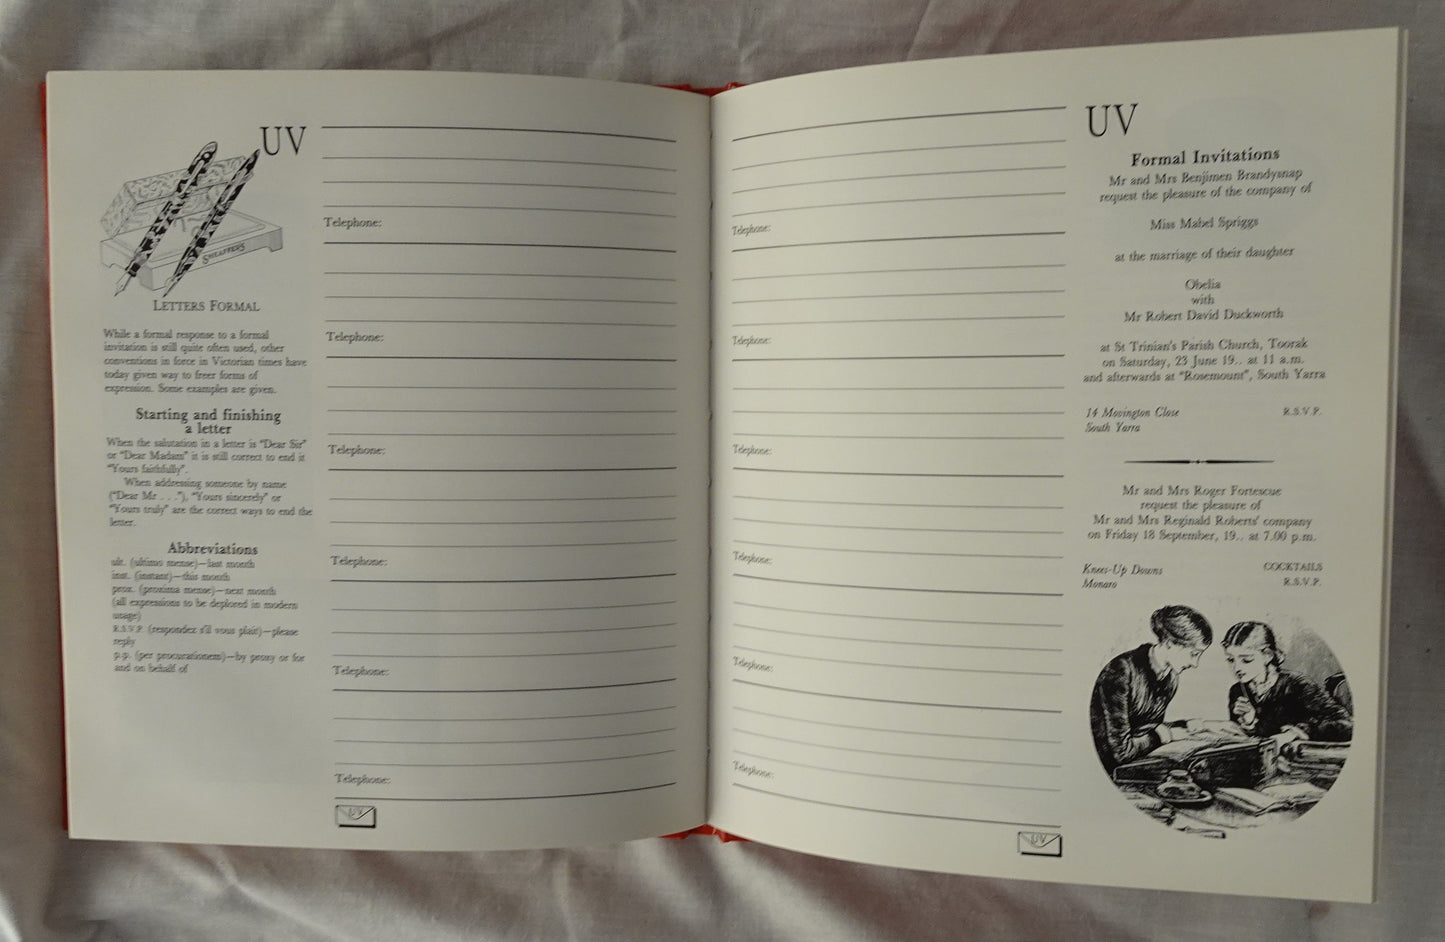 UV
SHEAFFER'S
LETTERS FORMAL
While a formal response to a formal
invitation is still quite often used, other
conventions in force in Victorian times have
today given way to freer forms of
expression. Some examples are given.
Starting and finishing
a letter
When the salutation in a letter is "Dear Sir"
or "Dear Madam" it is still correct to end it
"Yours faithfully".
When addressing someone by name
("Dear Mr . . ."), "Yours sincerely" or
"Yours truly" are the correct ways to end the
letter.
Abbreviations
ult. (ultimo mense)—last month
inst. (instant)—this month
prox. (proxima mense)—next month
(all expressions to be deplored in modern
usage)
R.S.V.P. (respondez s'il vous plait)—please
reply
p.p. (per procurationem)—by proxy or for
and on behalf of
Telephone:
Telephone:
Telephone:
Telephone:
Telephone:
Telephone:
UV
Telephone:
Telephone:
Telephone:
Telephone:
Telephone:
Telephone:
UV
UV
Formal Invitations
Mr and Mrs Benjimen Brandysnap
request the pleasure of the company of
Miss Mabel Spriggs
at the marriage of their daughter
Obelia
with
Mr Robert David Duckworth
at St Trinian's Parish Church, Toorak
on Saturday, 23 June 19.. at 11 a.m.
and afterwards at "Rosemount", South Yarra
14 Movington Close R.S.V.P.
South Yarra
Mr and Mrs Roger Fortescue
request the pleasure of
Mr and Mrs Reginald Roberts' company
on Friday 18 September, 19.. at 7.00 p.m.
Knees-Up Downs COCKTAILS
Monaro R.S.V.P.